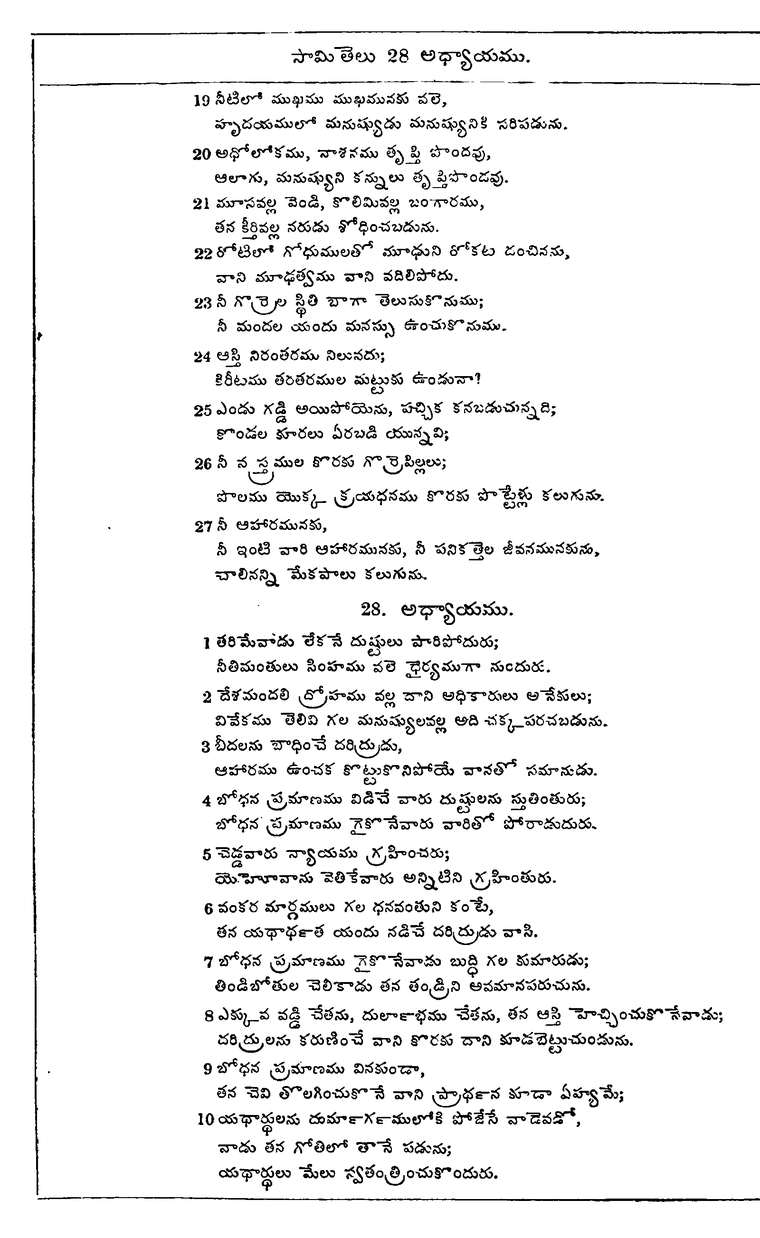 సామితెలు 28 అధ్యాయము.
19 నీటిలో ముఖము ముఖమునకు వలె,
హృదయములో మనుష్యుడు మనుష్యునికి సరిపడును.
20 అధోలోకము, నాశనము తృప్తి పొందవు,
ఆలాగు, మనుష్యుని కన్నులు తృప్తిపొండవు.
21 మూసవల్ల వెండి, కొలిమివల్ల బంగారము,
తన కీర్తివల్ల నరుడు శోధించబడును.
22 రోటిలో గోధుములతో మూఢుని రోకట దంచినను,
వాని మూఢత్వము వాని వదిలిపోదు.
23 నీ గొర్రెల స్థితి బాగా తెలుసుకొనుము;
నీ మందల యందు మనస్సు ఉంచుకొనుము.
24 ఆస్తి నిరంతరము నిలునదు;
కిరీటము తరతరముల మట్టుకు ఉండునా?
25 ఎండు గడ్డి అయిపోయెను, పచ్చిక కనబడుచున్నది;
కొండల కూరలు ఏరబడి యున్నవి;
26 నీ వస్త్రముల కొరకు గొర్రెపిల్లలు;
పొలము యొక్క క్రయధనము కొరకు పొట్టేళ్లు కలుగును.
27 నీ ఆహారమునకు,
నీ ఇంటి వారి ఆహారమునకు, నీ పనికత్తెల జీవనమునకును,
చాలినన్ని మేకపాలు కలుగును.
28. అధ్యాయము.
1 తరిమేవాడు లేకనే దుష్టులు పారిపోదురు;
నీతిమంతులు సింహము వలె ధైర్యముగా నుందురు.
2 దేశమందలి ద్రోహము వల్ల దాని అధికారులు అనేకులు;
వివేకము తెలివి గల మనుష్యులవల్ల అది చక్కపరచబడును.
3 బీదలను బాధించే దరిద్రుడు,
ఆహారము ఉంచక కొట్టుకొనిపోయే వానతో సమానుడు.
4 బోధన ప్రమాణము విడిచే వారు దుష్టులను స్తుతింతురు;
బోధన ప్రమాణము గైకొనేవారు వారితో పోరాడుదురు.
5 చెడ్డవారు న్యాయము గ్రహించరు;
యెహూవాను వెతికేవారు అన్నిటిని గ్రహింతురు.
6 వంకర మార్గములు గల ధనవంతుని కంటే,
తన యథార్థత యందు నడిచే దరిద్రుడు వాసి.
7 బోధన ప్రమాణము గైకొనేవాడు బుద్ధి గల కుమారుడు;
తిండిబోతుల చెలికాడు తన తండ్రిని అవమానపరుచును.
8 ఎక్కువ వడ్డి చేతను, దులాŁభము చేతను, తన ఆస్తి హెచ్చించుకొనేవాడు;
దరిద్రులను కరుణించే వాని కొరకు దాని కూడబెట్టుచుండును.
9 బోధన ప్రమాణము వినకుండా,
తన చెవి తొలగించుకొనే వాని ప్రార్థన కూడా ఏహ్యమే;
10 యథార్థులను దుమార్గములోకి పోజేసే వాడెవడో,
వాడు తన గోతిలో తానే పడును;
యథార్థులు మేలు స్వతంత్రించుకొందురు.